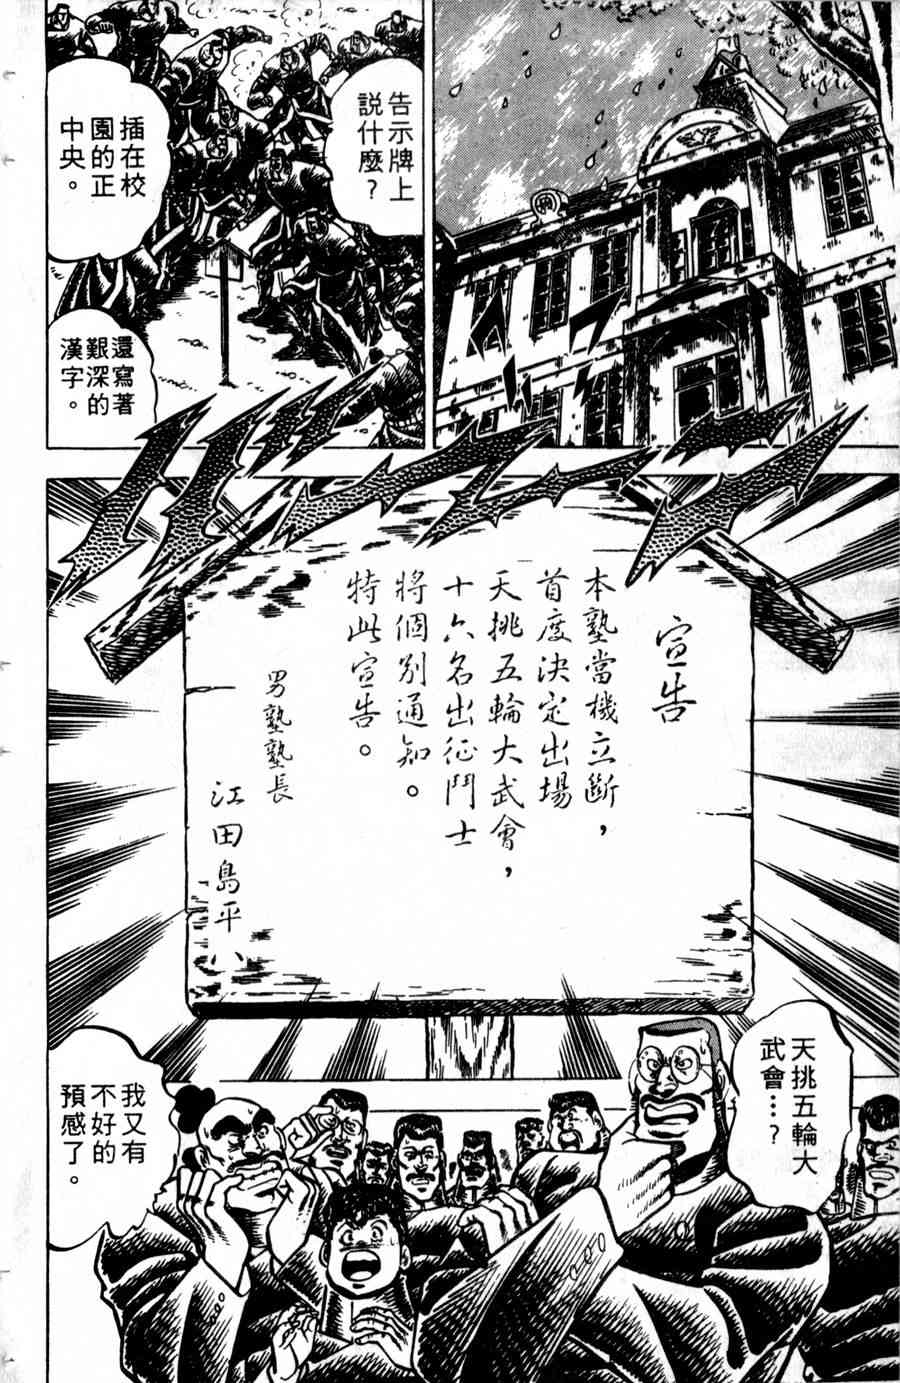 告示牌上
説什麼？
插在校
園的正
中央。
還寫著
艱深的
漢字。
宣告
本塾當機立斷，
首度決定出場
天挑五輪大武會，
十六名出征鬥士
將個別通知。
特此宣告。
男塾塾長
江田島平八
天挑五輪大
武會…？
我又有
不好的
預感了。